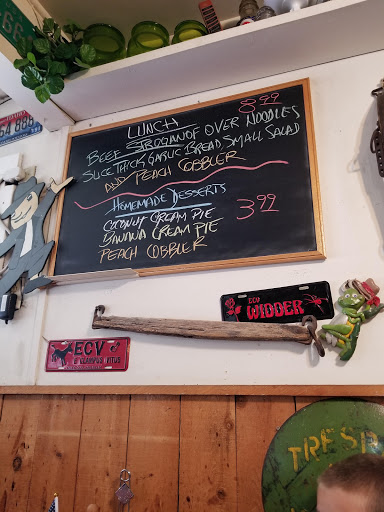 LUNCH 8.99
BEEF STROGANOF OVER NOODLES
SLICE THICK GARLIC BREAD SMALL SALAD
AND PEACH COBBLER
HOMEMADE DESSERTS
COCONUT CREAM PIE 3.99
BANANA CREAM PIE
PEACH COBBLER
ECV
WIDDER
ECV
TRESP